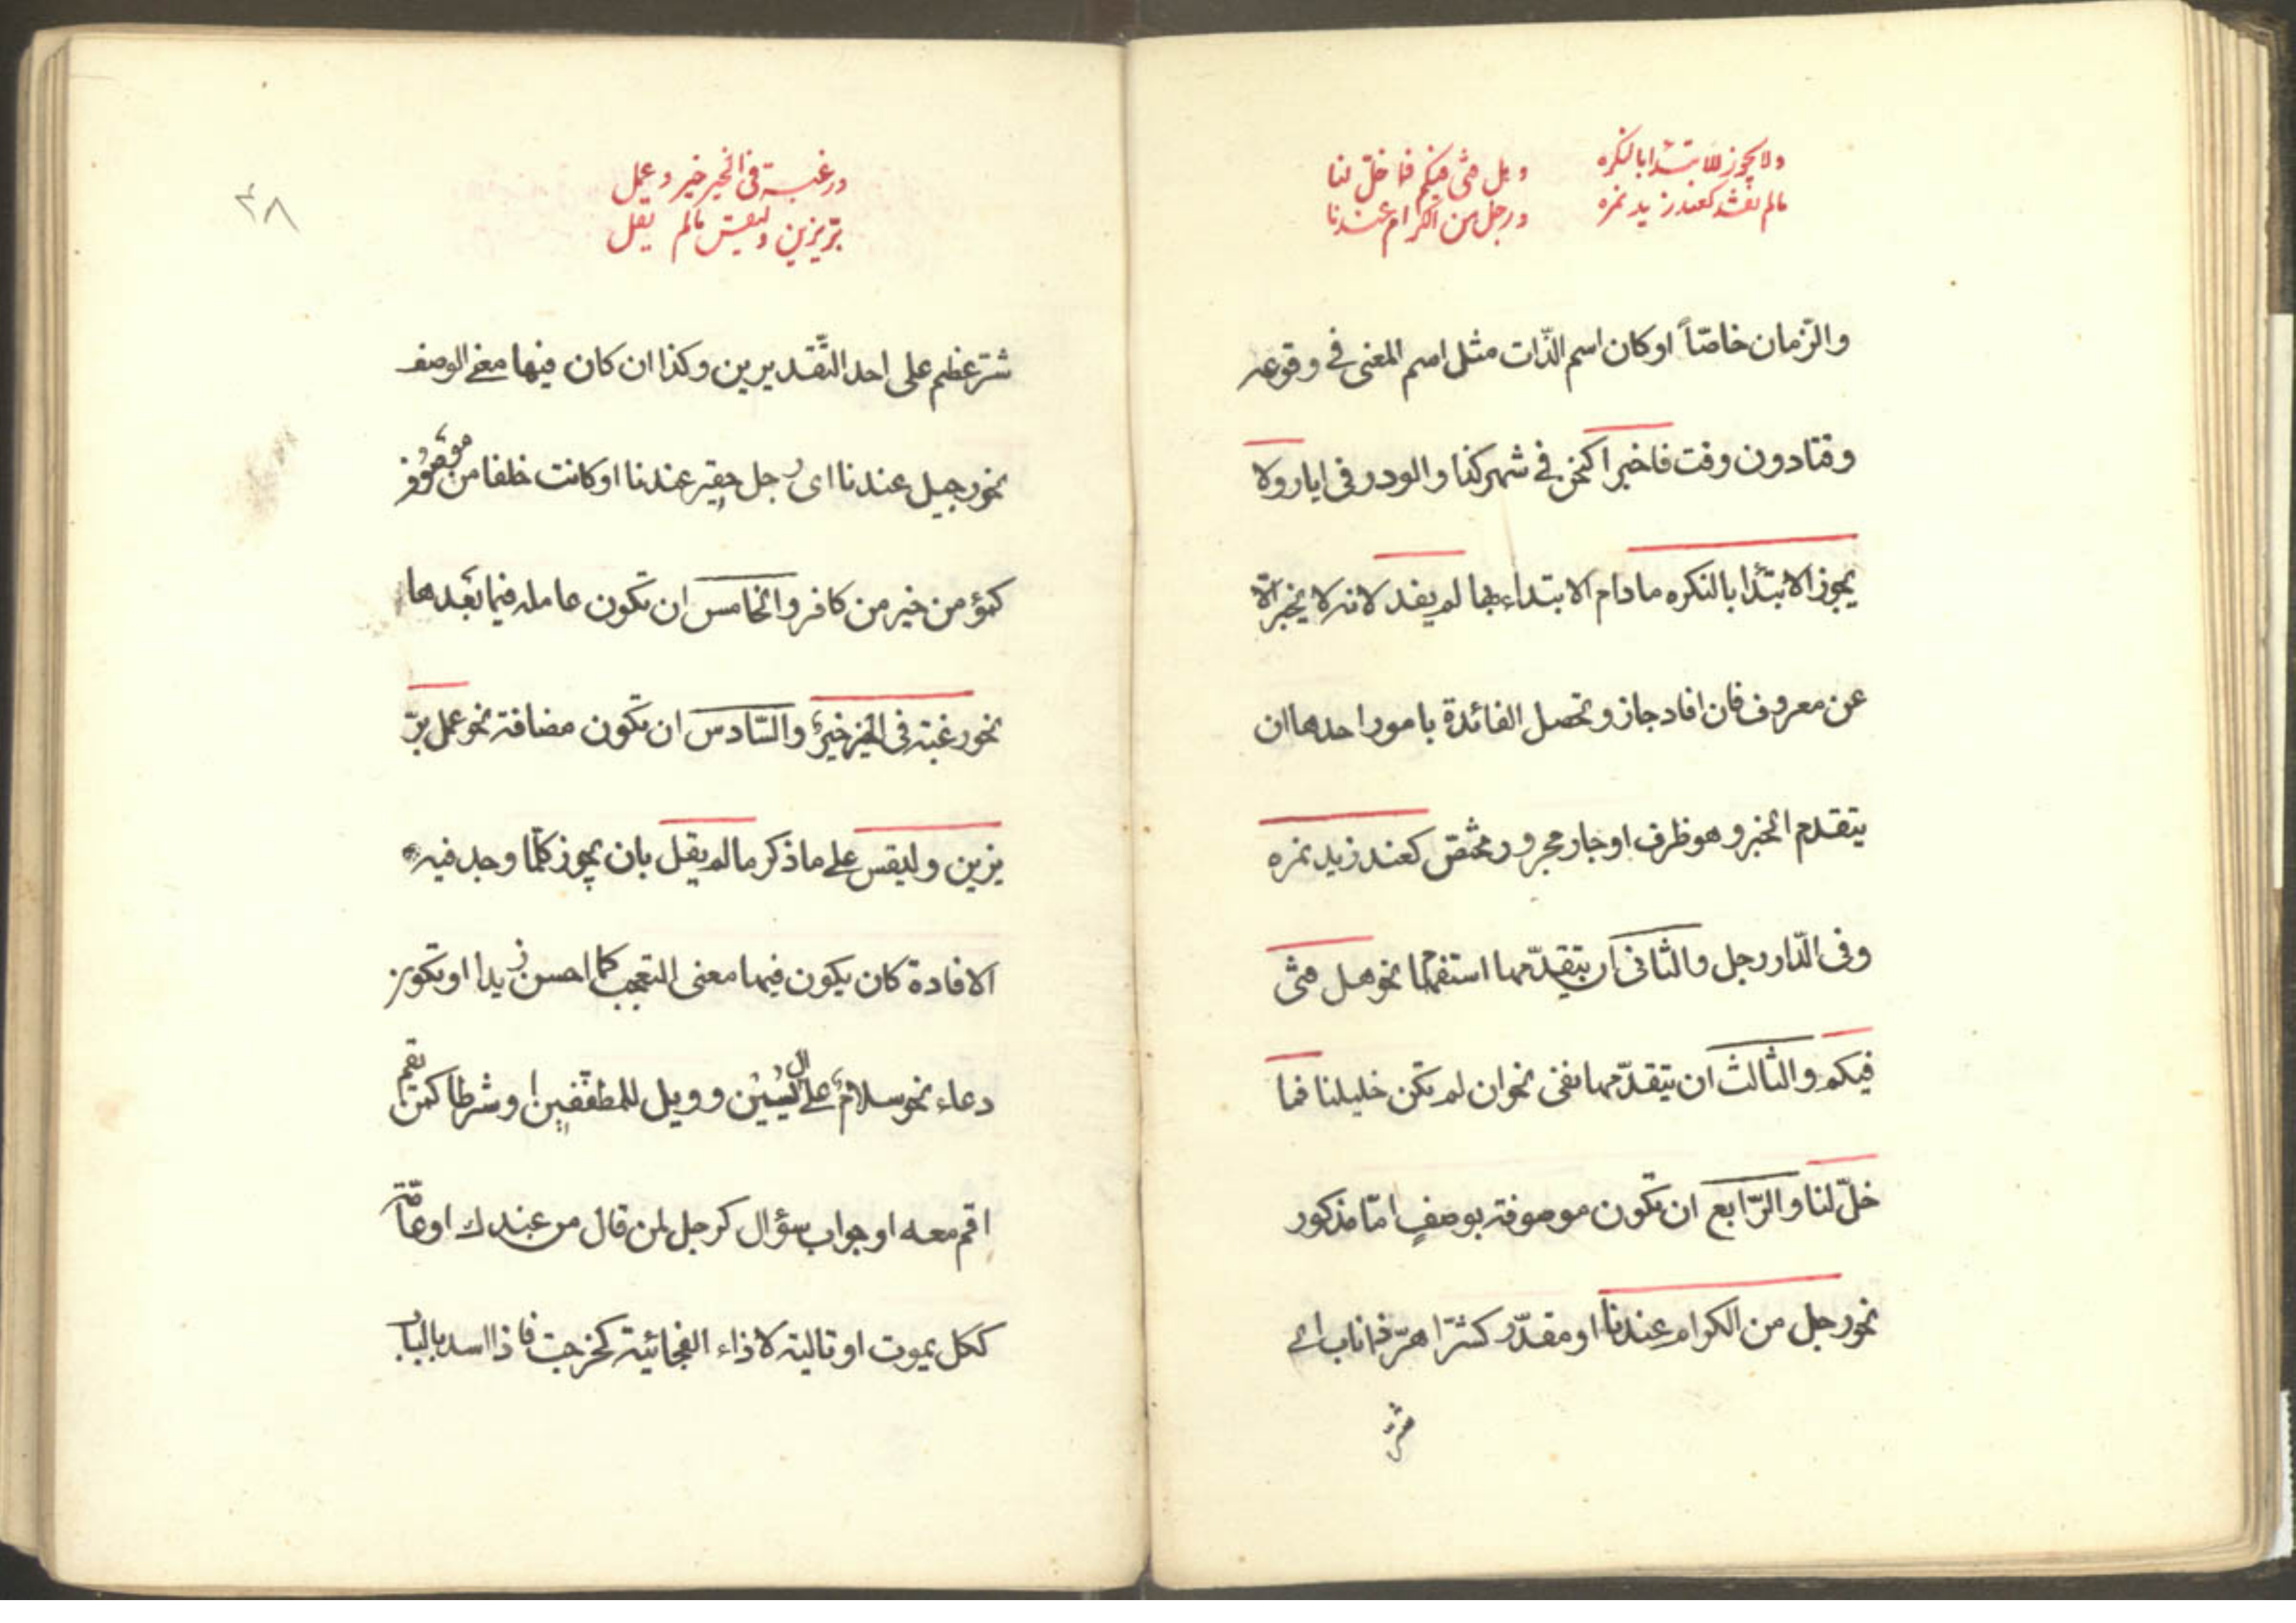 ولا يجوز الابتدا بالنكره
مالم تفد كعند زيد نمره
وهل فتى فيكم فما خلّ لنا
ورجل من الكرام عندنا
والزّمان خاصّاً او كان اسم الذّات مثل اسم المعنى فى وقوعه
وقتا دون وقت فاخبرا كنحن فى شهر كذا والورد فى ايار ولا
يجوز الابتدا بالنكره مادام الابتداء بها لم يفد لانه لا يخبر الّا
عن معروف فان افاد جاز وتحصل الفائدة بامور احدها ان
يتقدم الخبر وهو ظرف او جار ومجرور مختصّ كعند زيد نمره
وفى الدّار رجل والثانى ان يتقدّمها استفهام نحو هل فتى
فيكم والثالث ان يتقدّمها نفى نحو ان لم تكن خليلنا فما
خلّ لنا والرّابع ان تكون موصوفة بوصفٍ امّا مذكور
نحو رجل من الكرام عندنا او مقدّر كشرّ اهرّ ذا ناب اى
شرّ
٣٨
ورغبة فى الخير خير وعمل
برّ يزين وليقس مالم يقل
شرّ عظيم على احد التّقديرين وكذا ان كان فيها معنى الوصف
نحو رجيل عندنا اى رجل حقير عندنا او كانت خلفا من موصوف
كمؤمن خير من كافر والخامس ان تكون عاملة فيما بعدها
نحو رغبة فى الخير خيرٌ والسّادس ان تكون مضافة نحو عمل برّ
يزين وليقس على ما ذكر مالم يقل بان يجوز كلّما وجد فيه
الافادة كان يكون فيها معنى التعجب كما احسن زيدا او تكون
دعاء نحو سلامٌ على ال يسين وويل للمطفّفين او شرطا كمن يقم
اقم معه او جواب سؤال كرجل لمن قال من عندك او عامّة
ككل يموت او تالية لاذاء الفجائية كخرجت فاذا اسد بالباب